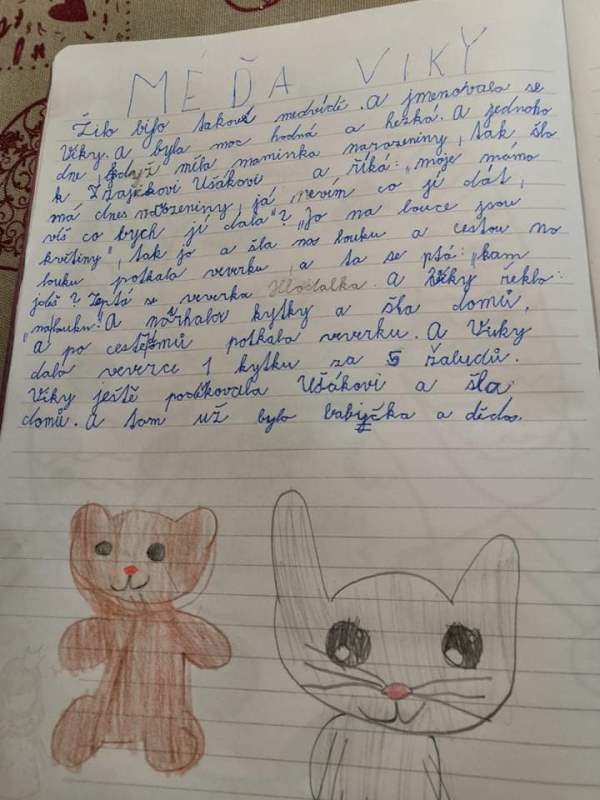 MÉĎA VIKY
Žilo bylo takové medvídě. A jmenovala se
Viky. A byla moc hodná a hezká. A jednoho
dne, když měla maminka narozeniny, tak šla
k Zajíčkovi Ušákovi a říká: "moje máma
má dnes narozeniny, já nevim co jí dát,
víš co bych jí dala"? "Jo na louce jsou
kvítiny", tak jo a šla na louku a cestou na
louku potkala veverku, a ta se ptá: "kam
jdeš? Zeptá se veverka Hlodalka. A Viky řekla:
"na louku." A natrhalov kytky a šla domů,
a po cestě domů potkala veverku. A Viky
dala veverce 1 kytku za 5 žaludů.
Viky ještě poděkovala Ušákovi a šla
domů. A tam už byla babička a děda.